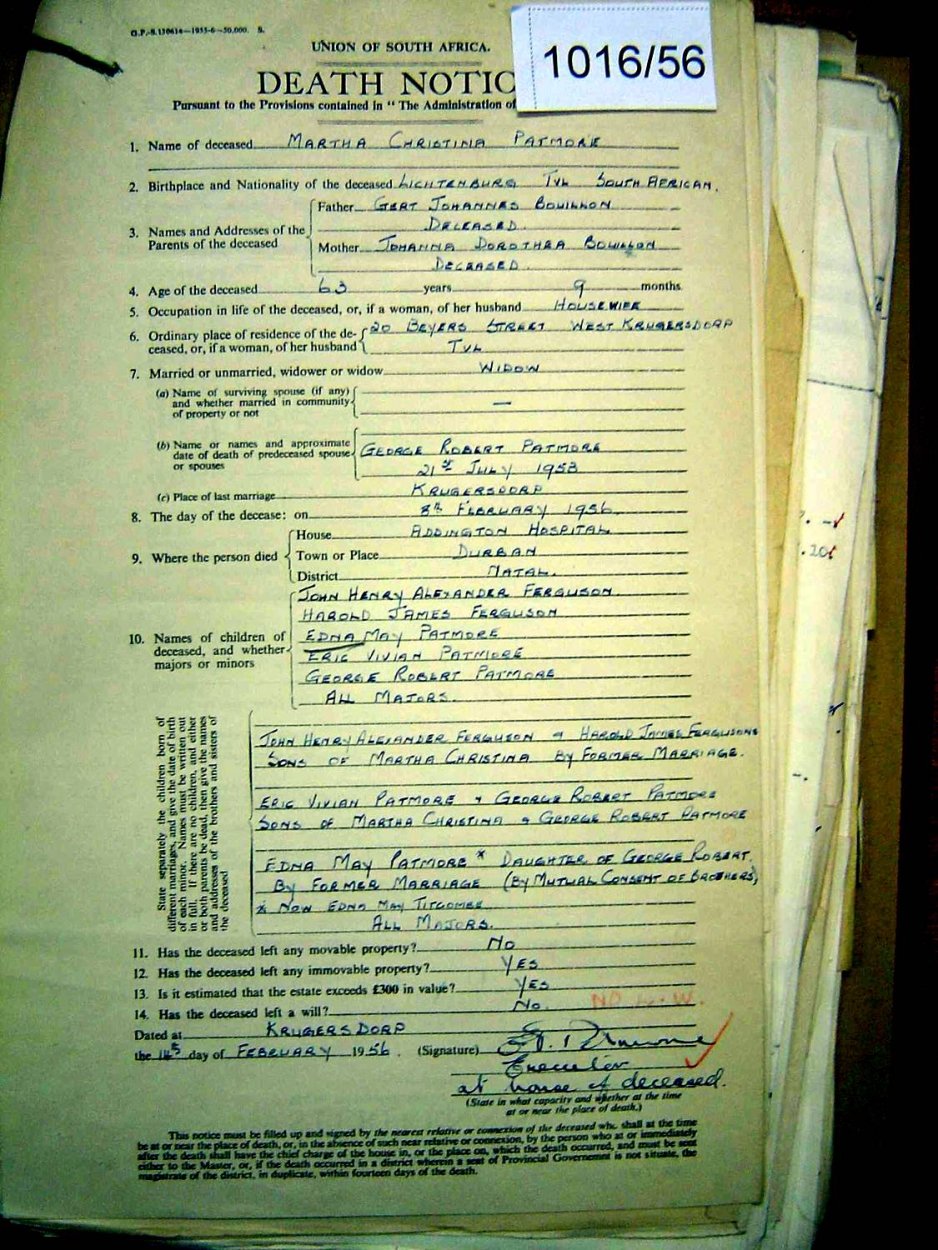 G.P.-S.130614—1955-6—50,000. S.
1016/56
UNION OF SOUTH AFRICA.
DEATH NOTIC
Pursuant to the Provisions contained in " The Administration of
1. Name of deceased MARTHA CHRISTINA PATMORE
2. Birthplace and Nationality of the deceased LICHTENBURG TVL SOUTH AFRICAN.
3. Names and Addresses of the Parents of the deceased
Father GERT JOHANNES BOUILLON
DECEASED.
Mother JOHANNA DOROTHEA BOUILLON
DECEASED.
4. Age of the deceased 63 years 9 months
5. Occupation in life of the deceased, or, if a woman, of her husband HOUSEWIFE
6. Ordinary place of residence of the de- 20 BEYERS STREET WEST KRUGERSDORP
ceased, or, if a woman, of her husband TVL
7. Married or unmarried, widower or widow WIDOW
(a) Name of surviving spouse (if any)
and whether married in community —
of property or not
(b) Name or names and approximate GEORGE ROBERT PATMORE
date of death of predeceased spouse
or spouses 21st JULY 1953
(c) Place of last marriage KRUGERSDORP
8. The day of the decease: on 8th FEBRUARY 1956.
9. Where the person died
House ADDINGTON HOSPITAL
Town or Place DURBAN
District NATAL.
10. Names of children of
deceased, and whether
majors or minors
JOHN HENRY ALEXANDER FERGUSON.
HAROLD JAMES FERGUSON
EDNA MAY PATMORE
ERIC VIVIAN PATMORE
GEORGE ROBERT PATMORE
ALL MAJORS.
State separately the children born of
different marriages, and give the date of birth
of each minor. Names must be written out
in full. If there are no children, and either
or both parents be dead, then give the names
and addresses of the brothers and sisters of
the deceased
JOHN HENRY ALEXANDER FERGUSON & HAROLD JAMES FERGUSONS
SONS OF MARTHA CHRISTINA BY FORMER MARRIAGE.
ERIC VIVIAN PATMORE & GEORGE ROBERT PATMORE
SONS OF MARTHA CHRISTINA & GEORGE ROBERT PATMORE
EDNA MAY PATMORE * DAUGHTER OF GEORGE ROBERT.
BY FORMER MARRIAGE (BY MUTUAL CONSENT OF BROTHERS)
* NOW EDNA MAY TITCOMBE
ALL MAJORS.
11. Has the deceased left any movable property? NO
12. Has the deceased left any immovable property? YES
13. Is it estimated that the estate exceeds £300 in value? YES
14. Has the deceased left a will? No. NO L.W.
Dated at KRUGERSDORP
the 14th day of FEBRUARY 1956. (Signature)
Executor
at house of deceased.
(State in what capacity and whether at the time
at or near the place of death.)
This notice must be filled up and signed by the nearest relative or connexion of the deceased who shall at the time
be at or near the place of death, or, in the absence of such near relative or connexion, by the person who at or immediately
after the death shall have the chief charge of the house in, or the place on, which the death occurred, and must be sent
either to the Master, or, if the death occurred in a district wherein a seat of Provincial Government is not situate, the
magistrate of the district, in duplicate, within fourteen days of the death.